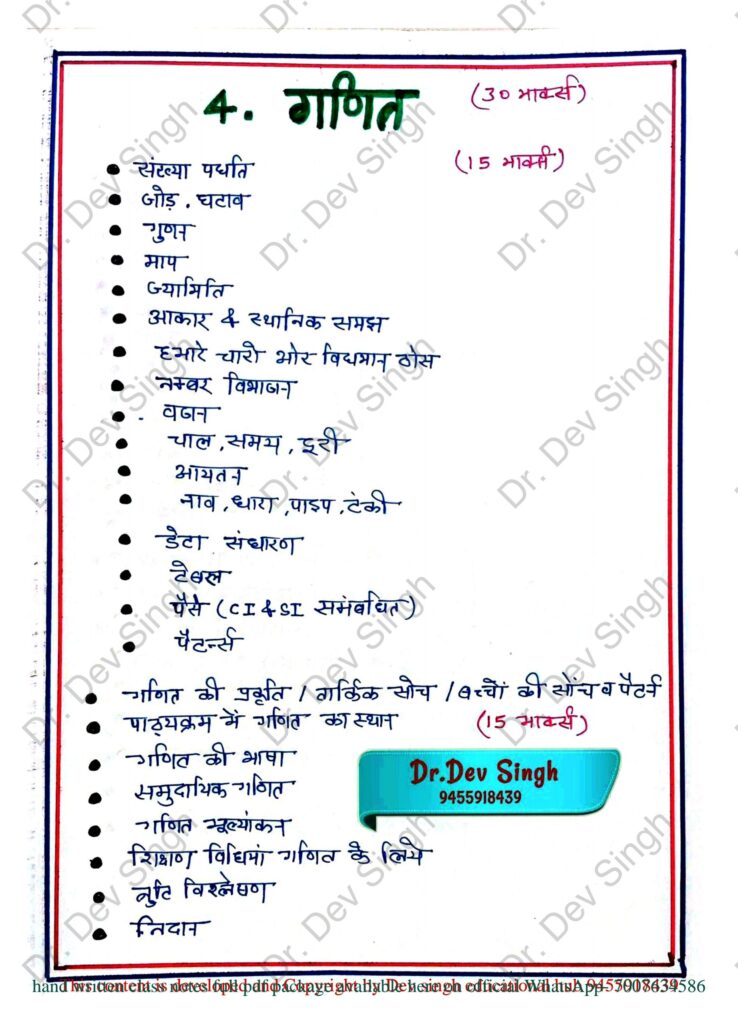 4. गणित (30 मार्क्स)
(15 मार्क्स)
• संख्या पद्धति
• जोड़, घटाव
• गुणन
• माप
• ज्यामिति
• आकार & स्थानिक समझ
• हमारे चारो ओर विद्यमान ठोस
• नम्बर विभाजन
• वजन
• चाल, समय, दूरी
• आयतन
• नाव, धारा, पाइप, टंकी
• डेटा संधारण
• टेबल
• पैसे (CI & SI समंबधित)
• पैटर्न्स
• गणित की प्रकृति / तार्किक सोच / बच्चों की सोंच व पैटर्न
• पाठ्यक्रम में गणित का स्थान (15 मार्क्स)
• गणित की भाषा
• समुदायिक गणित
• गणित मूल्यांकन
• शिक्षण विधियां गणित के लिये
• त्रुटि विश्लेषण
• निदान
Dr.Dev Singh
9455918439
Dr. Dev Singh